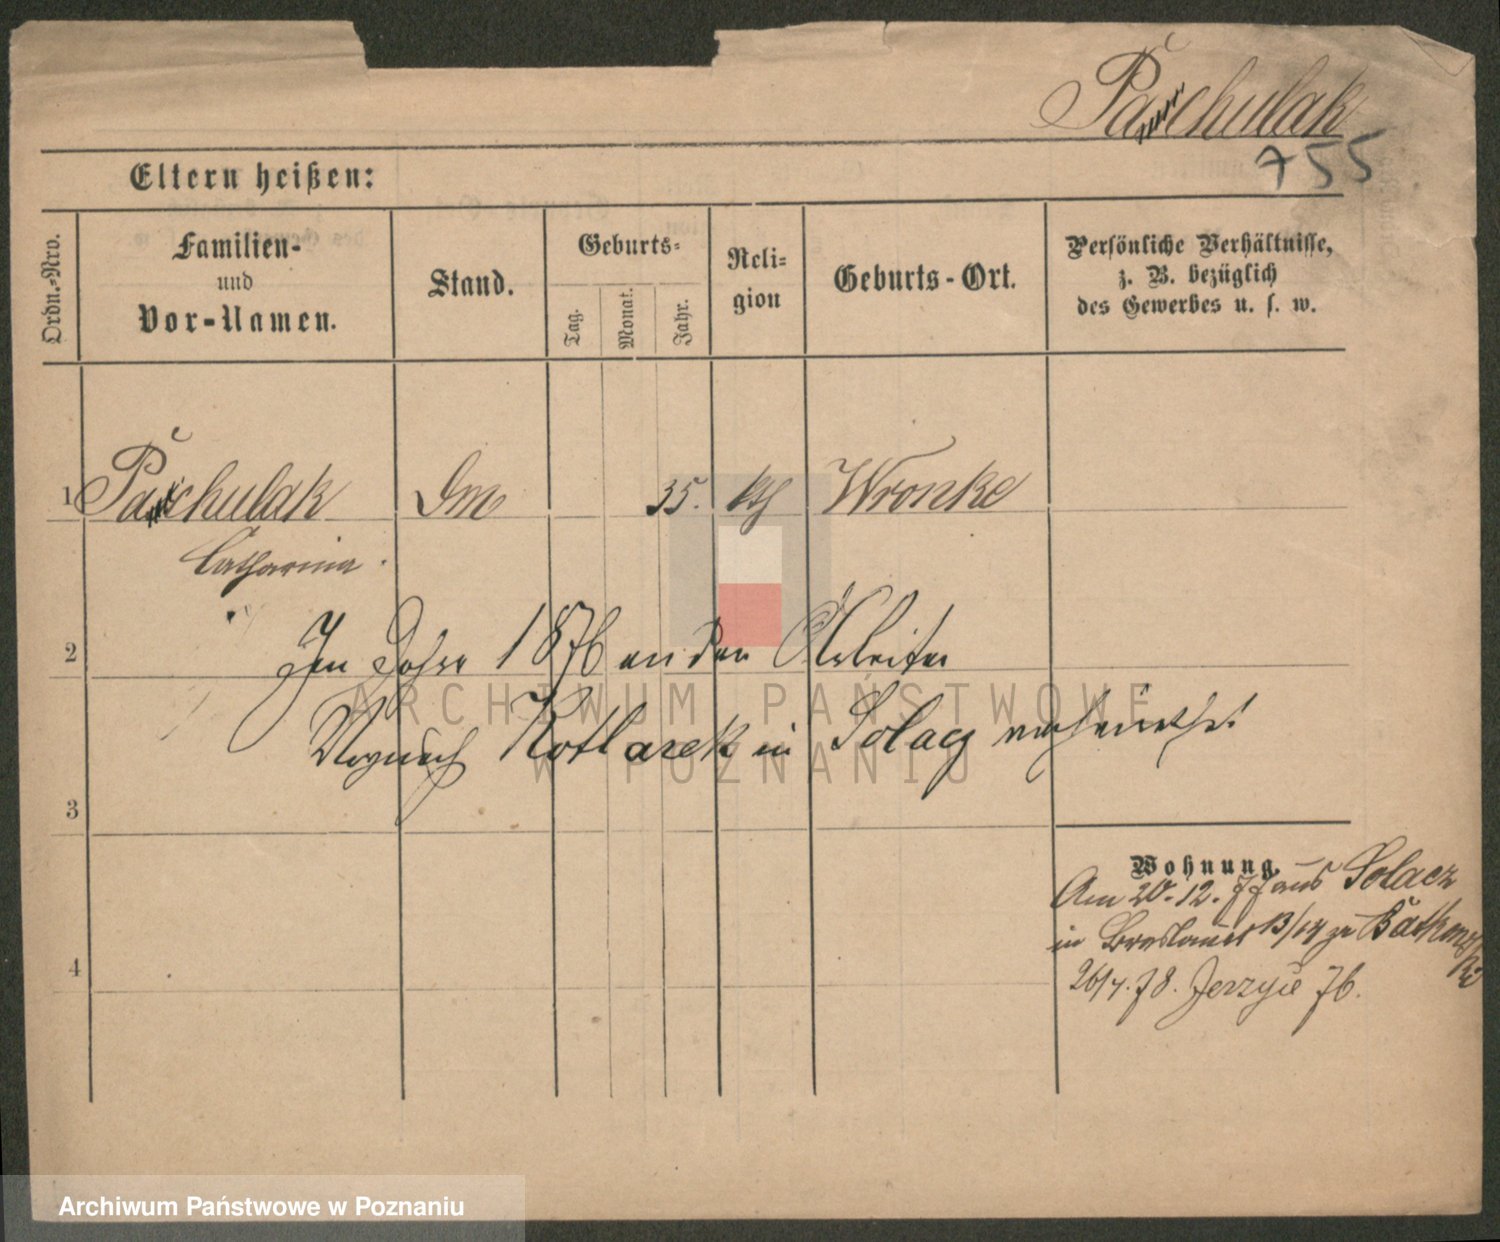 Pachulak
755
Eltern heißen:
Ordn.-Nro.
Familien-
und
Vor-Namen.
Stand.
Geburts-
Tag.
Monat.
Jahr.
Reli-
gion
Geburts-Ort.
Persönliche Verhältnisse,
z. B. bezüglich
des Gewerbes u. s. w.
1 Pachulak 35. kth Wronke
Catharina
2 Im Jahre 1876 an den Arbeiter
Kotlarek in Solacz verheirathet
ARCHIWUM PAŃSTWOWE
W POZNANIU
3
Wohnung.
Am 20.12. 77 aus Solacz
in Breslauerst 13/14 zu
4
26/4. 78. Jerzyce 76.
Archiwum Państwowe w Poznaniu